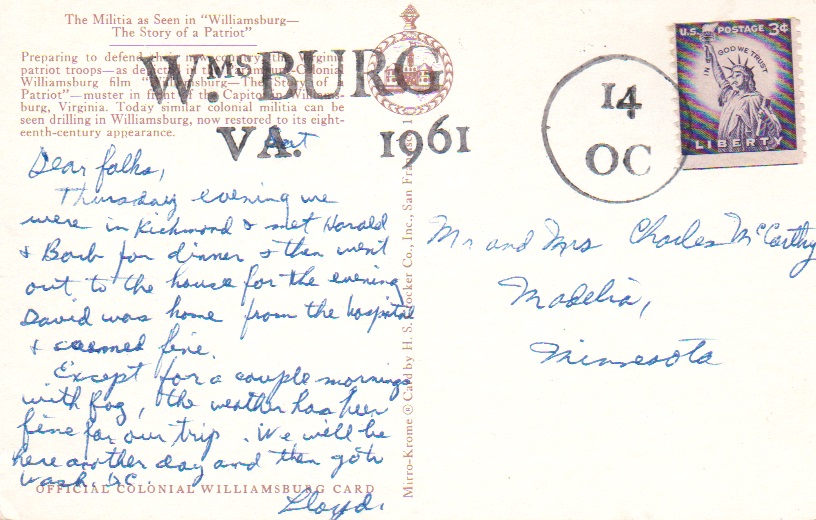 The Militia as Seen in "Williamsburg—
The Story of a Patriot"
Preparing to defend their new country, the Virginia
patriot troops—as depicted in the Colonial
Williamsburg film "Williamsburg—The Story of a
Patriot"—muster in front of the Capitol in Williams-
burg, Virginia. Today similar colonial militia can be
seen drilling in Williamsburg, now restored to its eight-
eenth-century appearance.
WMSBURG
VA. 1961
14
OC
U.S. POSTAGE 3¢
IN GOD WE TRUST
LIBERTY
Sat
Dear folks,
Thursday evening we
were in Richmond & met Harold
& Barb for dinner & then went
out to the house for the evening
David was home from the hospital
& seemed fine.
Except for a couple mornings
with fog, the weather has been
fine for our trip. We will be
here another day and then go to
Wash. D.C.
Lloyd.
Mr and Mrs Charles McCarthy
Madelia,
Minnesota
OFFICIAL COLONIAL WILLIAMSBURG CARD
Mirro-Krome ® Card by H. S. Crocker Co., Inc., San Francisco 1